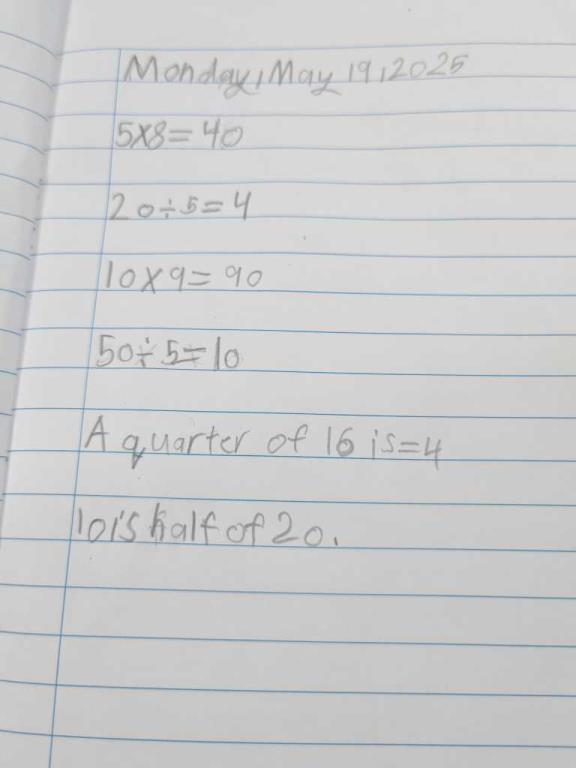 Monday, May 19, 2025
5x8=40
20÷5=4
10x9=90
50÷5=10
A quarter of 16 is=4
10 is half of 20.